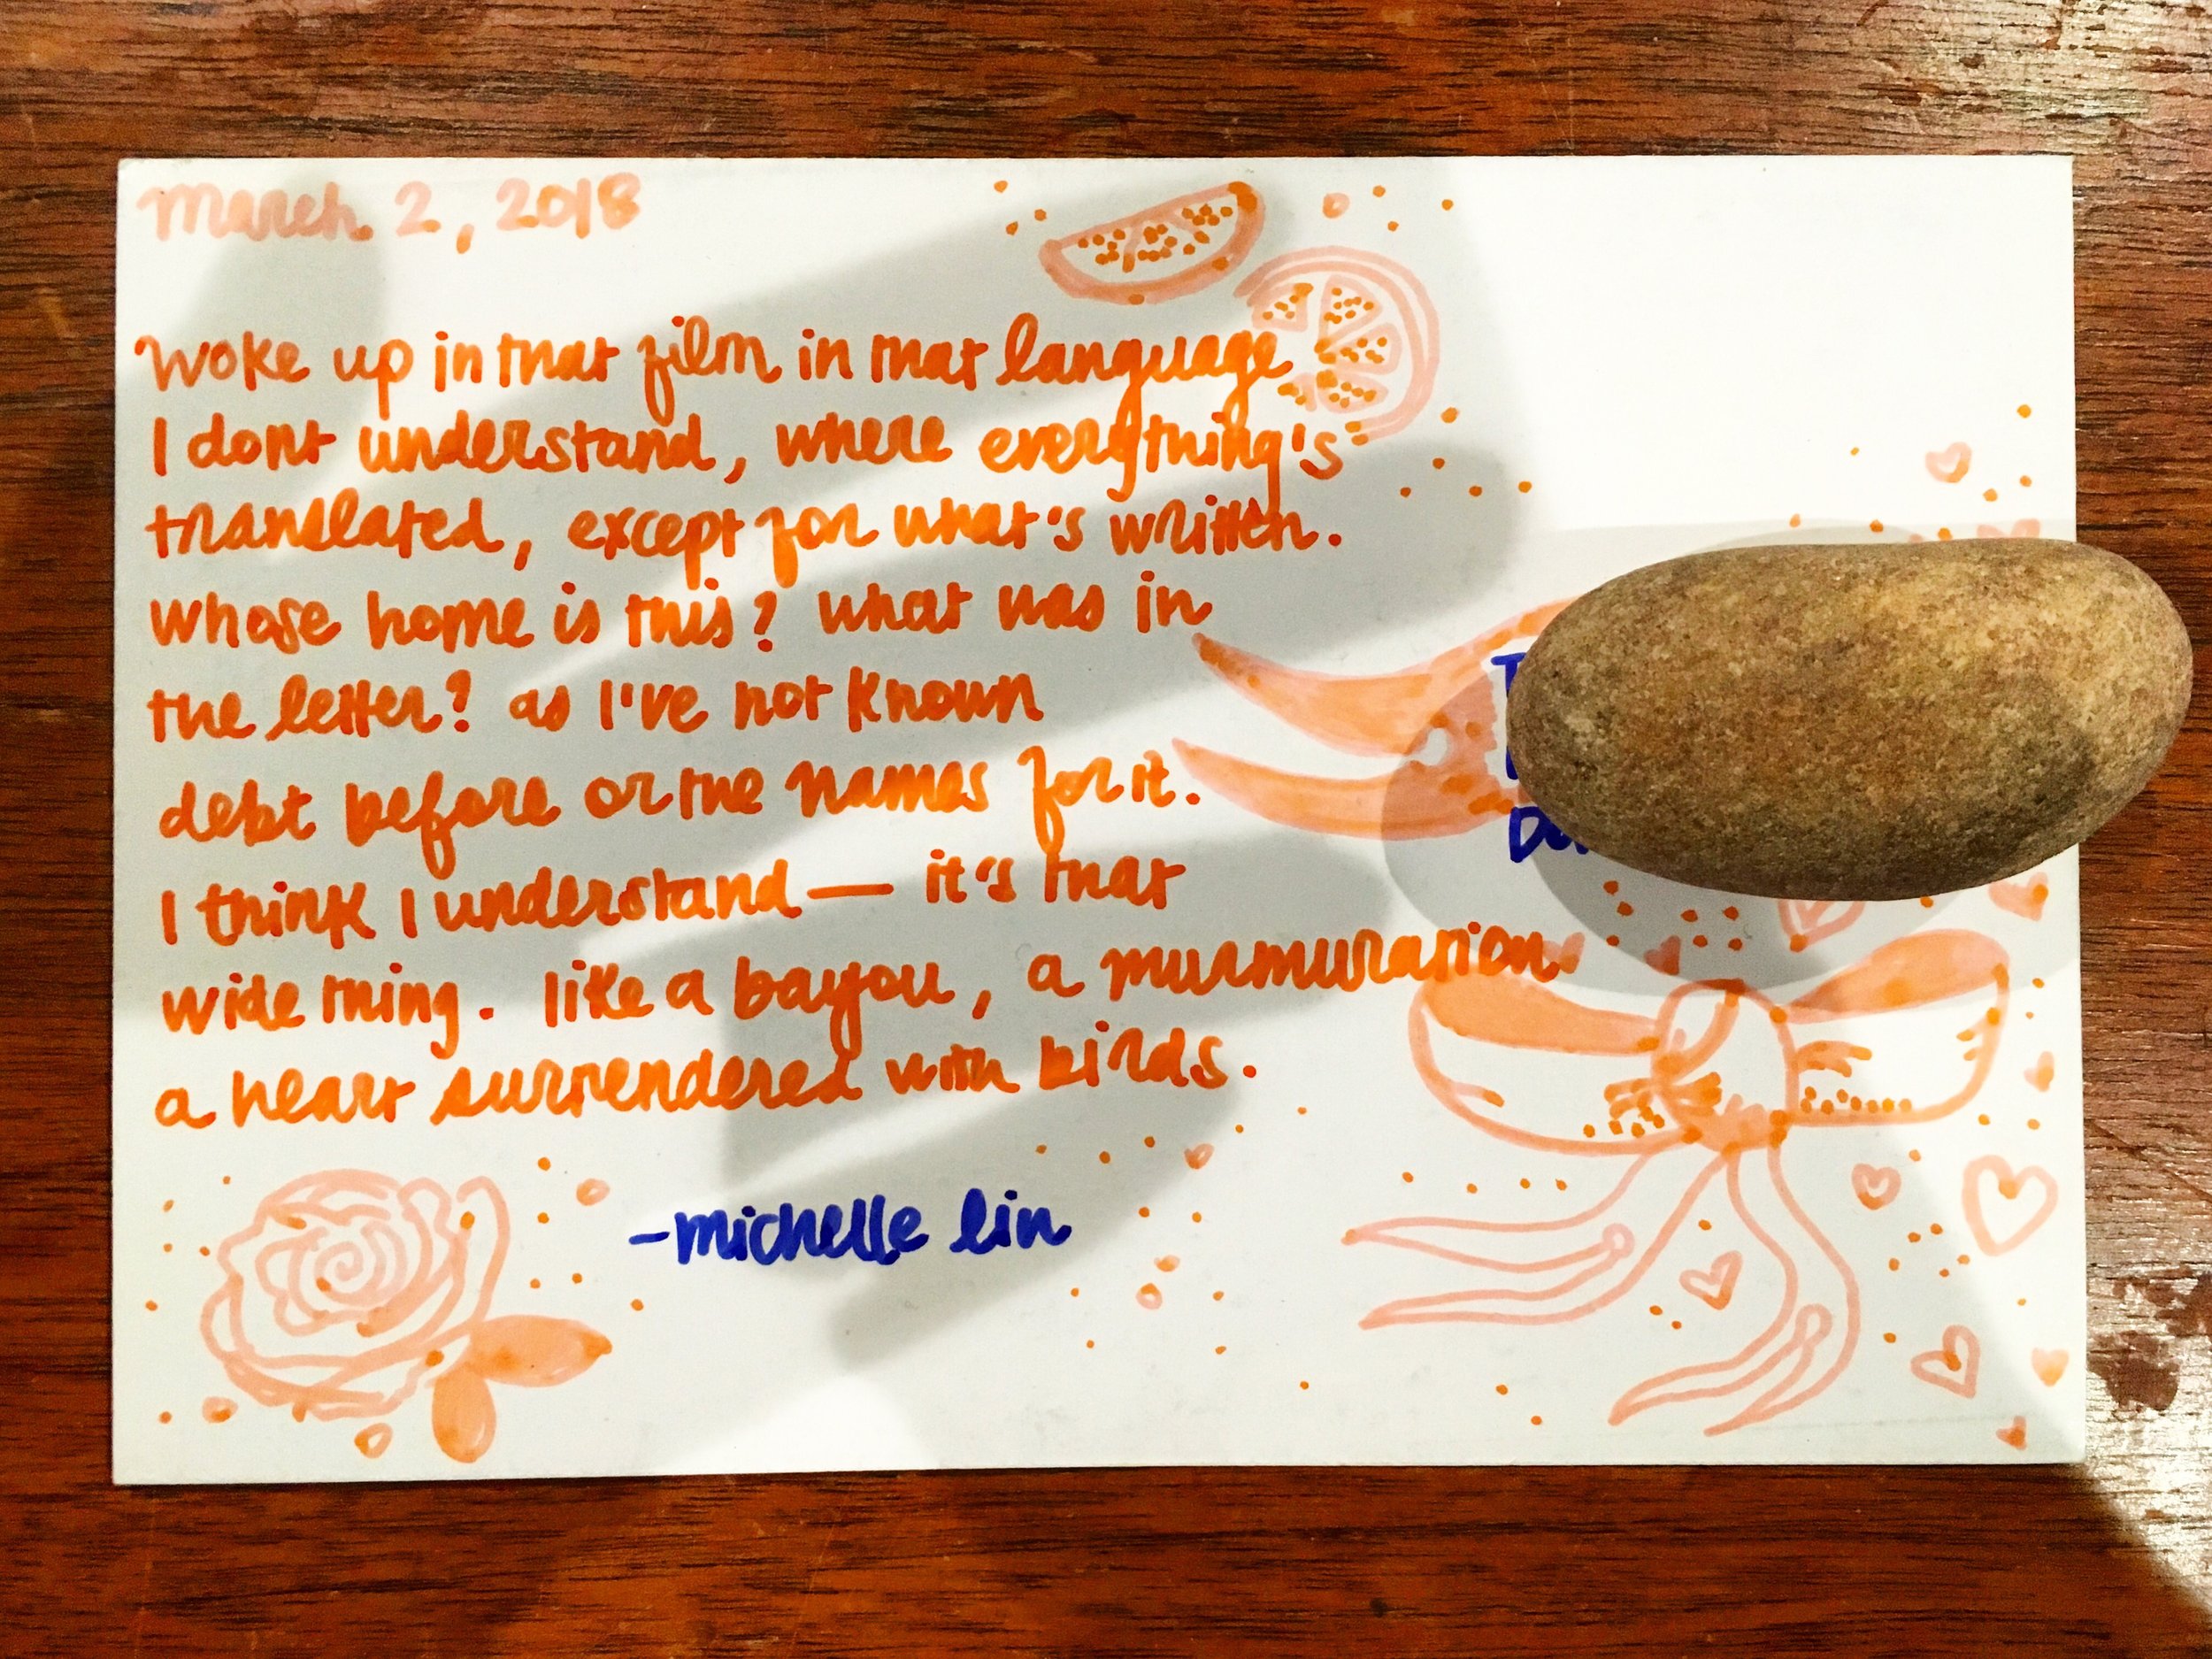 March 2, 2018
Woke up in that film in that language
I dont understand, where everything's
translated, except for what's written.
Whose home is this? What was in
the letter? as I've not known
debt before or the names for it.
I think I understand— it's that
wide thing. like a bayou, a murmuration.
a heart surrendered with birds.
-michelle lin